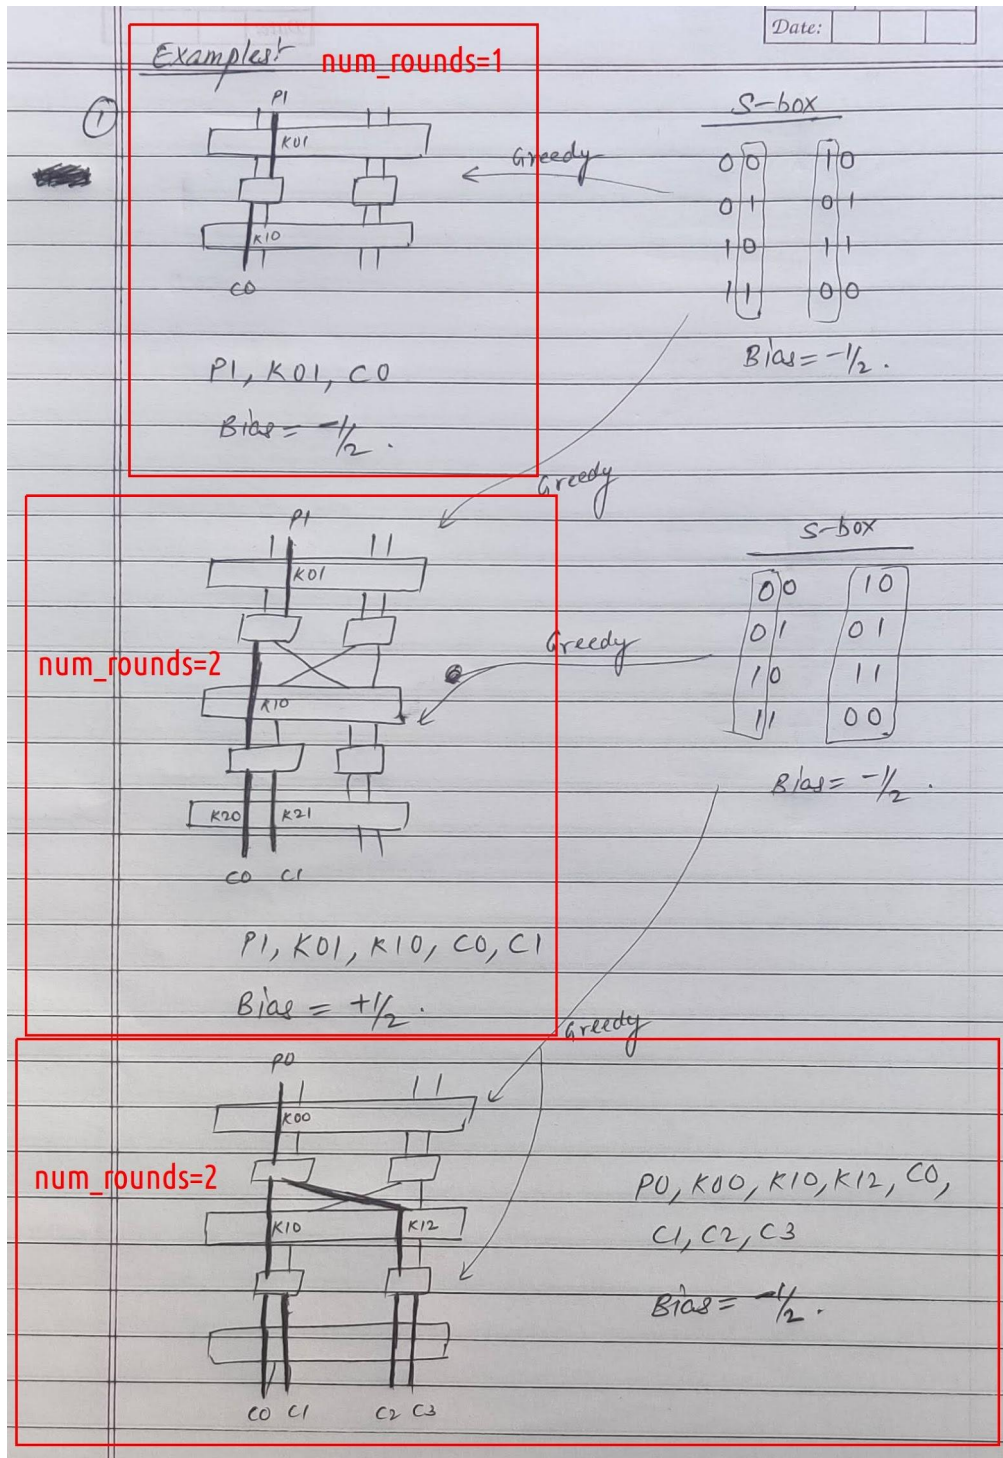 Date:
Examples:
num_rounds=1
1
P1
K01
K10
C0
Greedy
S-box
00 10
01 01
10 11
11 00
Bias = -1/2.
P1, K01, C0
Bias = -1/2.
Greedy
P1
K01
num_rounds=2
K10
K20 K21
C0 C1
Greedy
S-box
00 10
01 01
10 11
11 00
Bias = -1/2.
P1, K01, K10, C0, C1
Bias = +1/2.
Greedy
P0
K00
num_rounds=2
K10 K12
C0 C1 C2 C3
P0, K00, K10, K12, C0,
C1, C2, C3
Bias = -1/2.